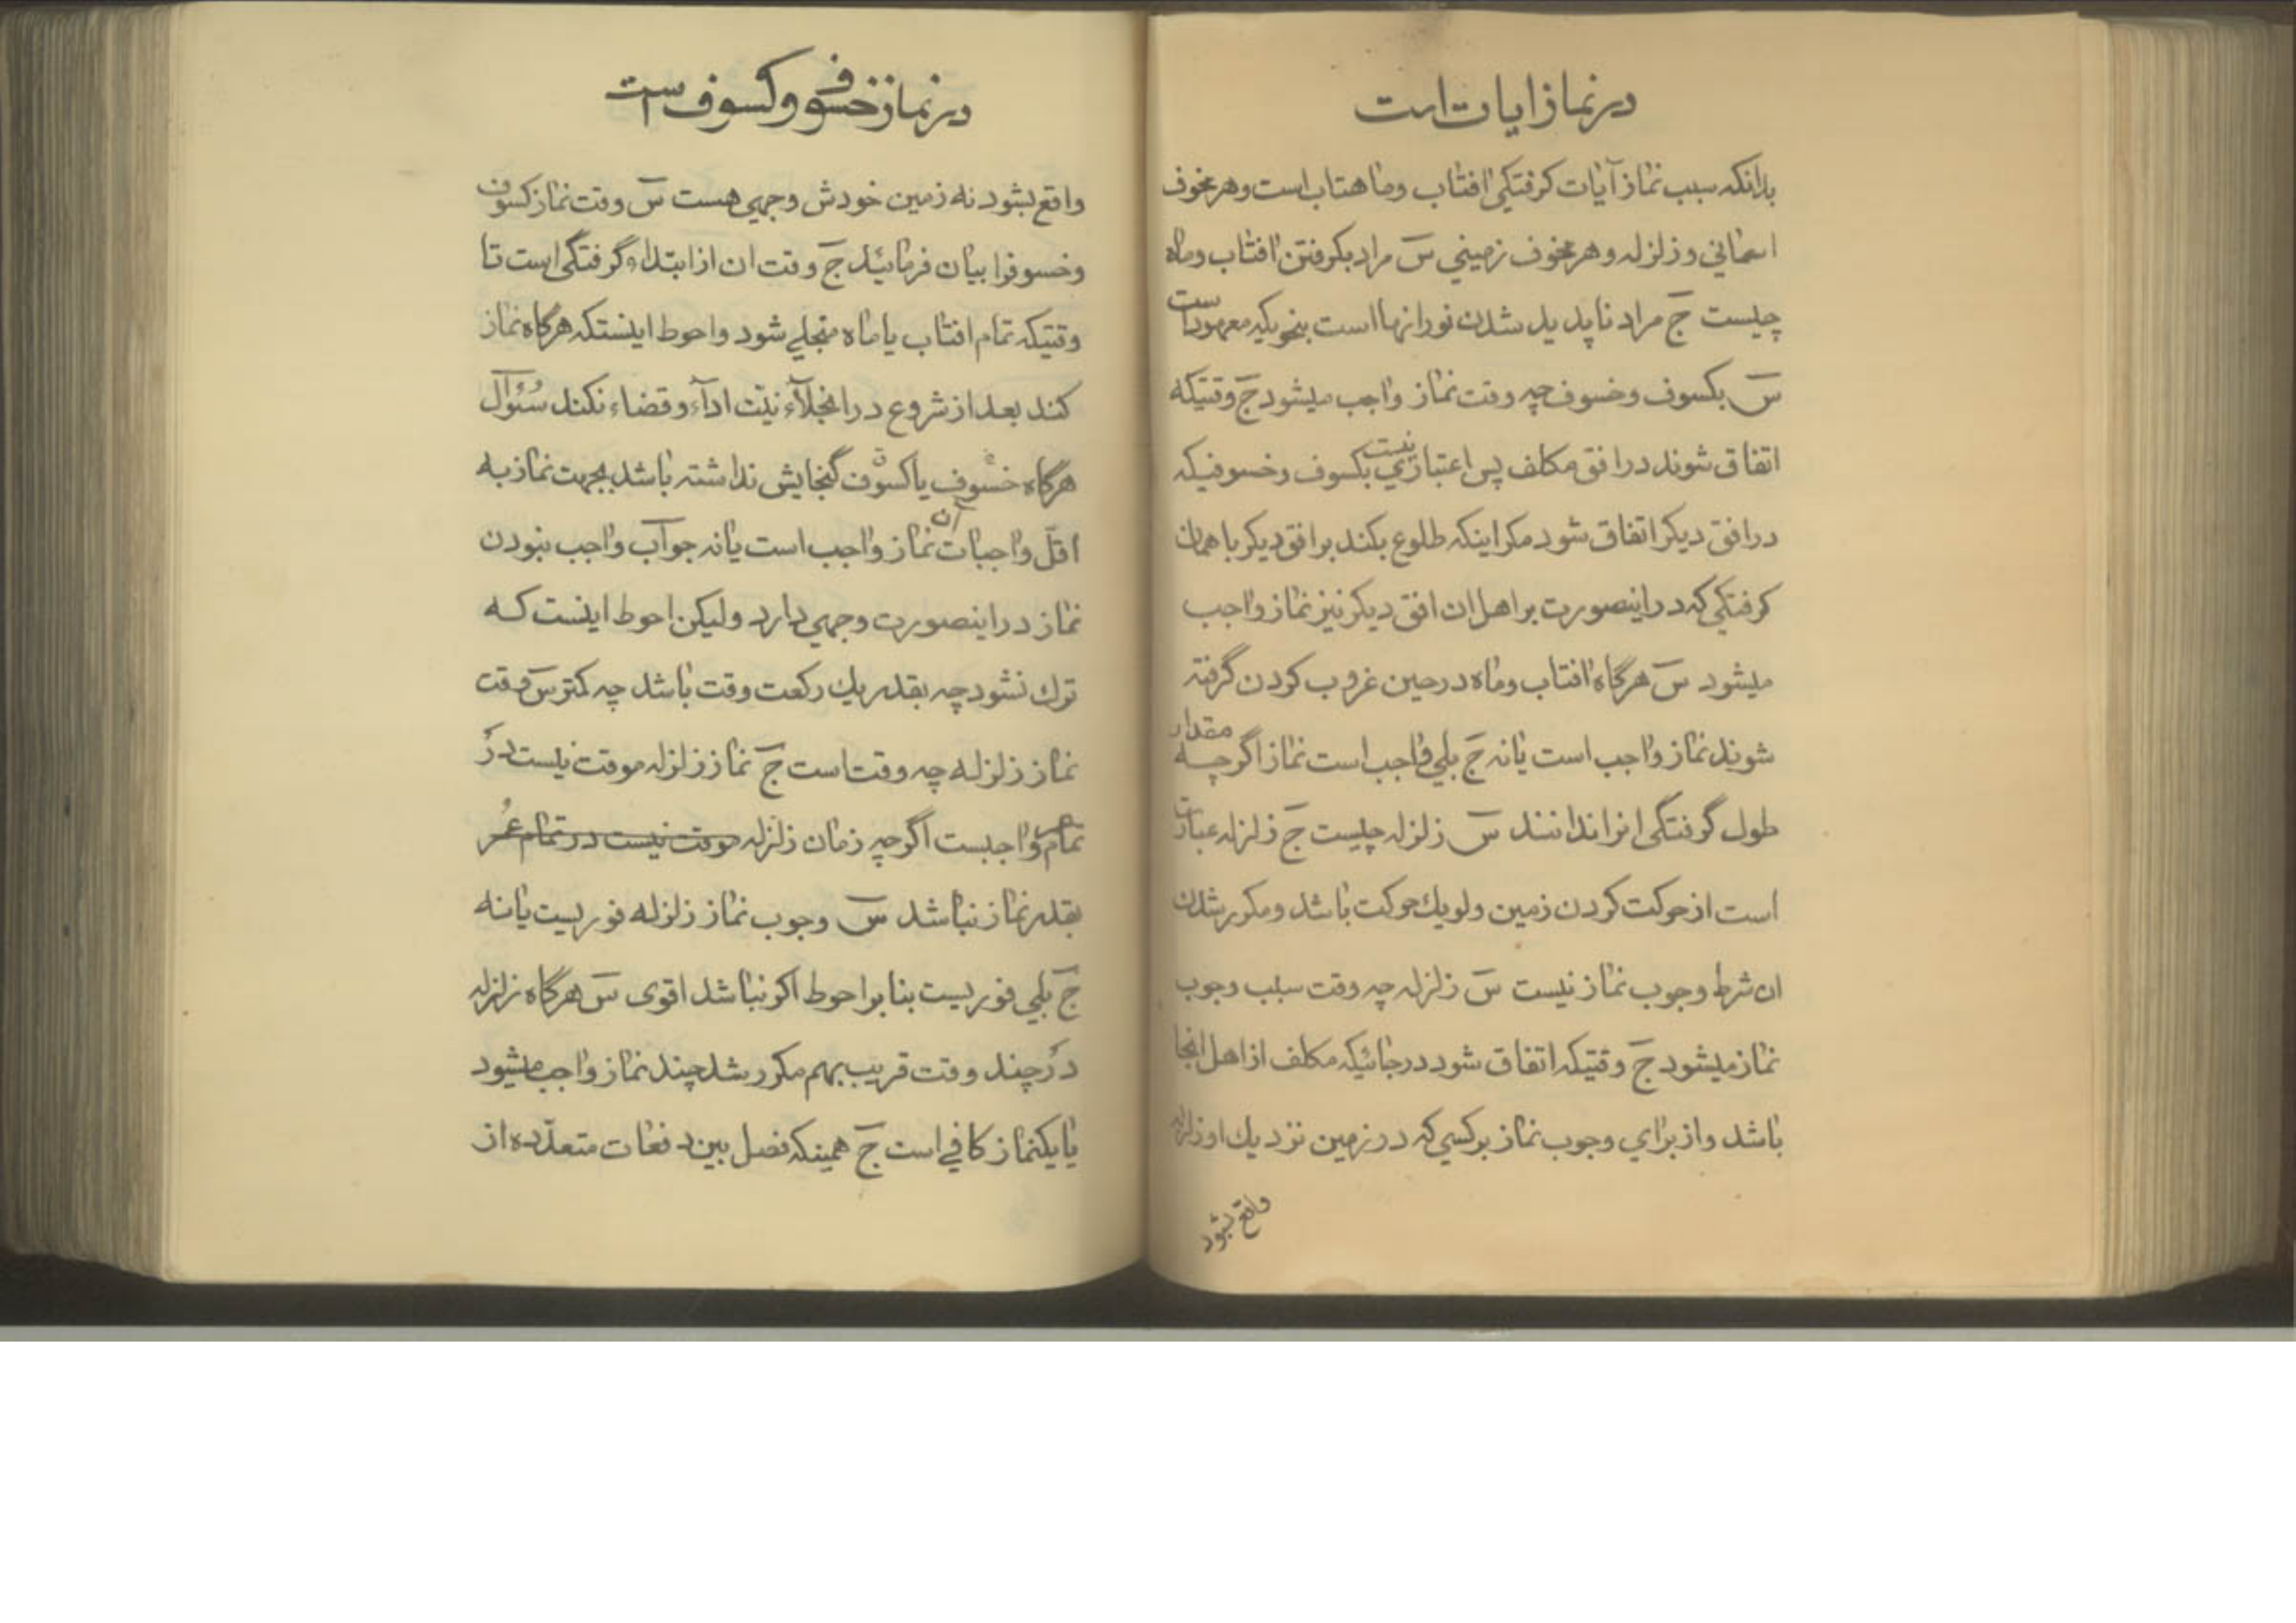 در نماز ایات است
بدانکه سبب نماز آیات کرفتکی افتاب وماهتاب است وهر مخوف
اسمانی و زلزله وهر مخوف زمینی س مراد بکرفتن افتاب وماه
چیست ج مراد ناپدید شدن نور انها است بنحویکه معهود است
س بکسوف وخسوف چه وقت نماز واجب میشود ج وقتیکه
اتفاق شوند در افق مکلف پس اعتباری نیست بکسوف وخسوفیکه
در افق دیکر اتفاق شود مکر اینکه طلوع بکند بر افق دیکر با همان
کرفتکی که در اینصورت بر اهل ان افق دیکر نیز نماز واجب
میشود س هرگاه افتاب وماه در حین غروب کردن گرفته
شوند نماز واجب است یا نه ج بلی واجب است نماز اگر چه مقدار
طول گرفتگی انرا ندانند س زلزله چیست ج زلزله عبارت
است از حرکت کردن زمین ولو یك حرکت باشد ومکرر شدن
ان شرط وجوب نماز نیست س زلزله چه وقت سبب وجوب
نماز میشود ج وقتیکه اتفاق شود در جائیکه مکلف از اهل انجا
باشد واز برای وجوب نماز بر کسی که در زمین نزدیك او زلزله
واقع بشود
در نماز خسوف و کسوف است
واقع بشود نه زمین خودش وجهی هست س وقت نماز کسوف
وخسوفرا بیان فرمائید ج وقت ان از ابتداء گرفتگی است تا
وقتیکه تمام افتاب یا ماه منجلی شود واحوط اینستکه هرگاه نماز
کند بعد از شروع در انجلاء نیّت اداء وقضاء نکند سُئوال
هرگاه خسوف یا کسوف گنجایش نداشته باشد بجهت نماز به
اقلّ واجبات آن نماز واجب است یا نه جواب واجب نبودن
نماز در اینصورت وجهی دارد ولیکن احوط اینست که
ترك نشود چه بقدر یك رکعت وقت باشد چه کمتر س وقت
نماز زلزله چه وقت است ج نماز زلزله موقت نیست در
تمام عمر واجبست اگر چه زمان زلزله موقت نیست در تمام عُمر
بقدر نماز نباشد س وجوب نماز زلزله فوریست یا نه
ج بلی فوریست بنا بر احوط اکر نباشد اقوی س هرگاه زلزله
در چند وقت قریب بهم مکرر شد چند نماز واجب میشود
یا یکنماز کافی است ج همینکه فصل بین دفعات متعدّده از